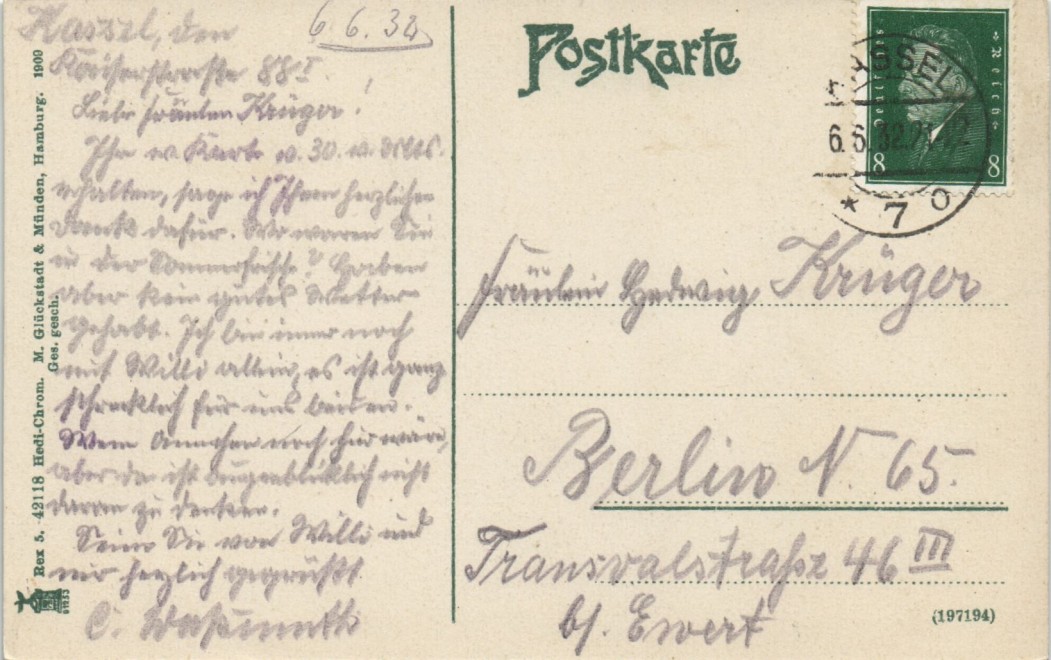 Kassel, den 6.6.32
Kaiserstraße 88 I
Liebe Fräulein Krüger!
Ihre w. Karte v. 30. v. Mts.
erhalten, sage ich Ihnen herzlichen
Dank dafür. Wo waren Sie
in der Sommerfrische? Haben
aber kein gutes Wetter
gehabt. Ich bin immer noch
mit Willi allein, es ist ganz
schrecklich für uns beiden.
Wenn Annchen noch hier wäre,
aber da ist augenblicklich nicht
daran zu denken.
Seien Sie von Willi und
mir herzlich gegrüßt
C.
Postkarte
Deutsches Reich
8 8
KASSEL
6.6.32.
* 7 o
Fräulein Hedwig Krüger
Berlin N. 65.
Transvalstraße 46 III
b/. Ewert
(197194)
Rex 5. 42118 Hedi-Chrom. M. Glückstadt & Münden, Hamburg. 1909
Ges. gesch.